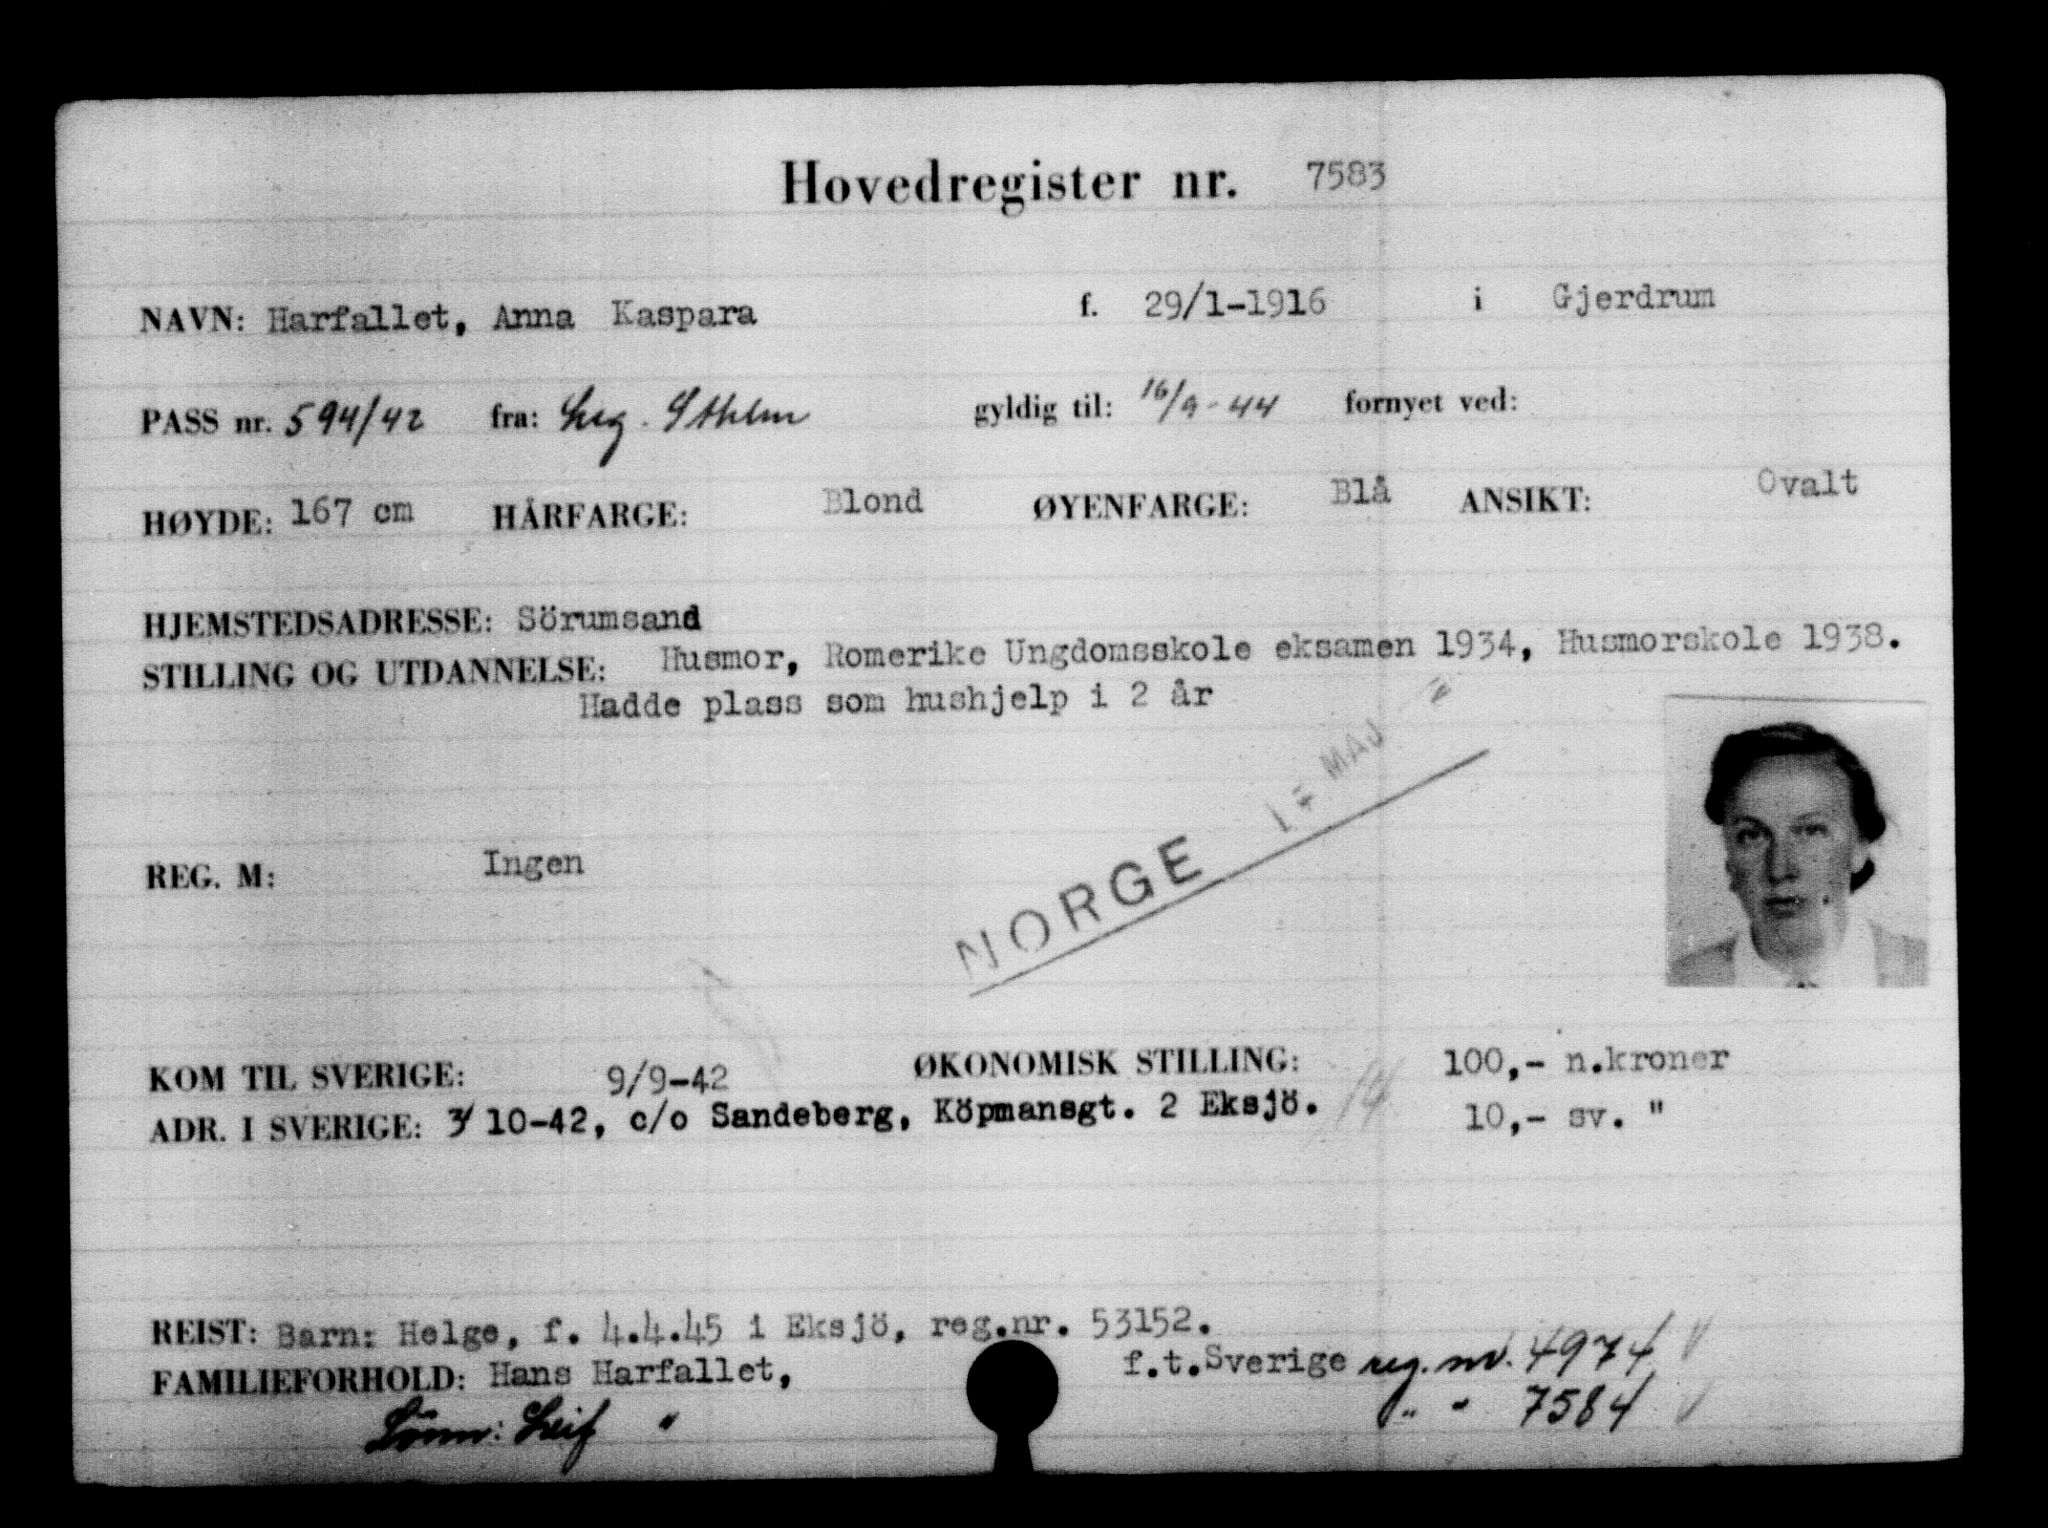 Hovedregister nr. 7583
NAVN: Harfallet, Anna Kaspara f. 29/1-1916 i Gjerdrum
PASS nr. 594/42 fra: Leg. Sthlm gyldig til: 16/9-44 fornyet ved:
HØYDE: 167 cm HÅRFARGE: Blond ØYENFARGE: Blå ANSIKT: Ovalt
HJEMSTEDSADRESSE: Sörumsand
STILLING OG UTDANNELSE: Husmor, Romerike Ungdomsskole eksamen 1934, Husmorskole 1938.
Hadde plass som hushjelp i 2 år
MAJ
NORGE
REG. M: Ingen
KOM TIL SVERIGE: 9/9-42 ØKONOMISK STILLING: 100,- n.kroner
ADR. I SVERIGE: 3/ 10-42, c/o Sandeberg, Köpmansgt. 2 Eksjö. 10,- sv. "
REIST: Barn: Helge, f. 4.4.45 i Eksjö, reg.nr. 53152.
FAMILIEFORHOLD: Hans Harfallet, f.t.Sverige reg. nr. 4974
Sönn: Leif " " " 7584